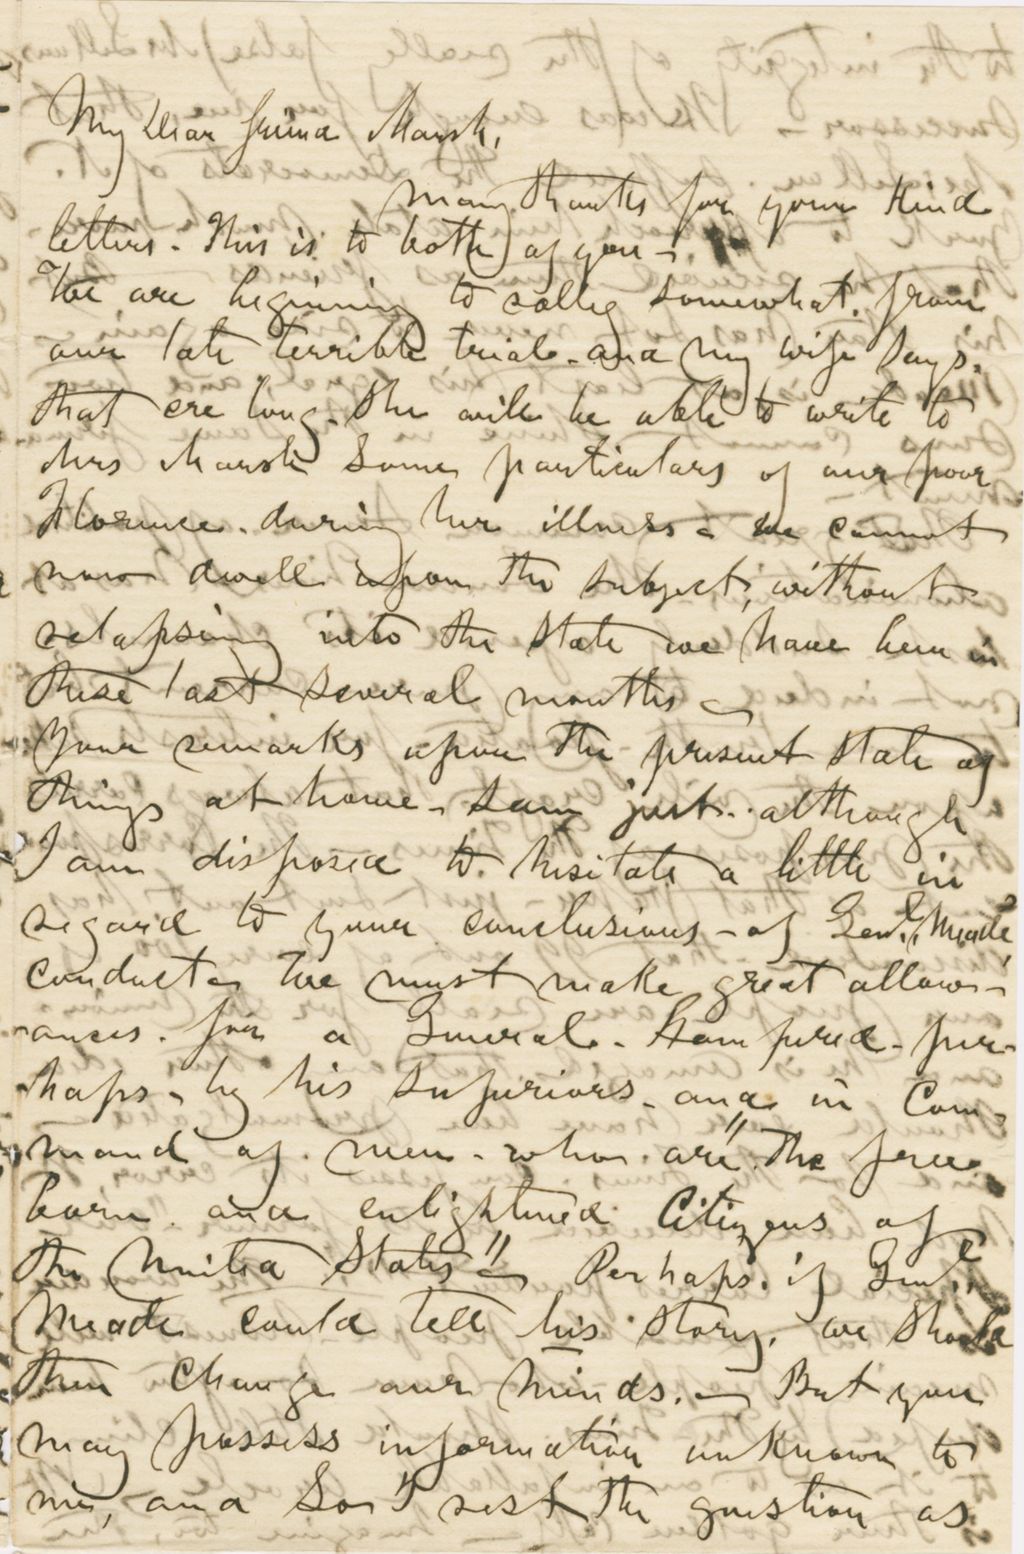 My Dear friend Marsh,
many thanks for your kind
letters - This is to both of you -
We are beginning to rally somewhat from
our late terrible trial - and my wife says
that ere long she will be able to write to
Mrs Marsh some particulars of our poor
Florence during her illness - we cannot
now dwell upon the subject, without
relapsing into the state we have been in
these last several months -
Your remarks upon the present state of
things at home - seem just - although
I am disposed to hesitate a little in
regard to your conclusions - of Genl. Meade's
conduct - We must make great allow-
ances for a General - Hampered - per-
haps - by his superiors - and in Com-
mand of men - who are "the free
born and enlightened Citizens of
the United States" - Perhaps if Genl.
Meade could tell his story, we should
then change our minds. - But you
may possess information unknown to
me, and so I rest the question as